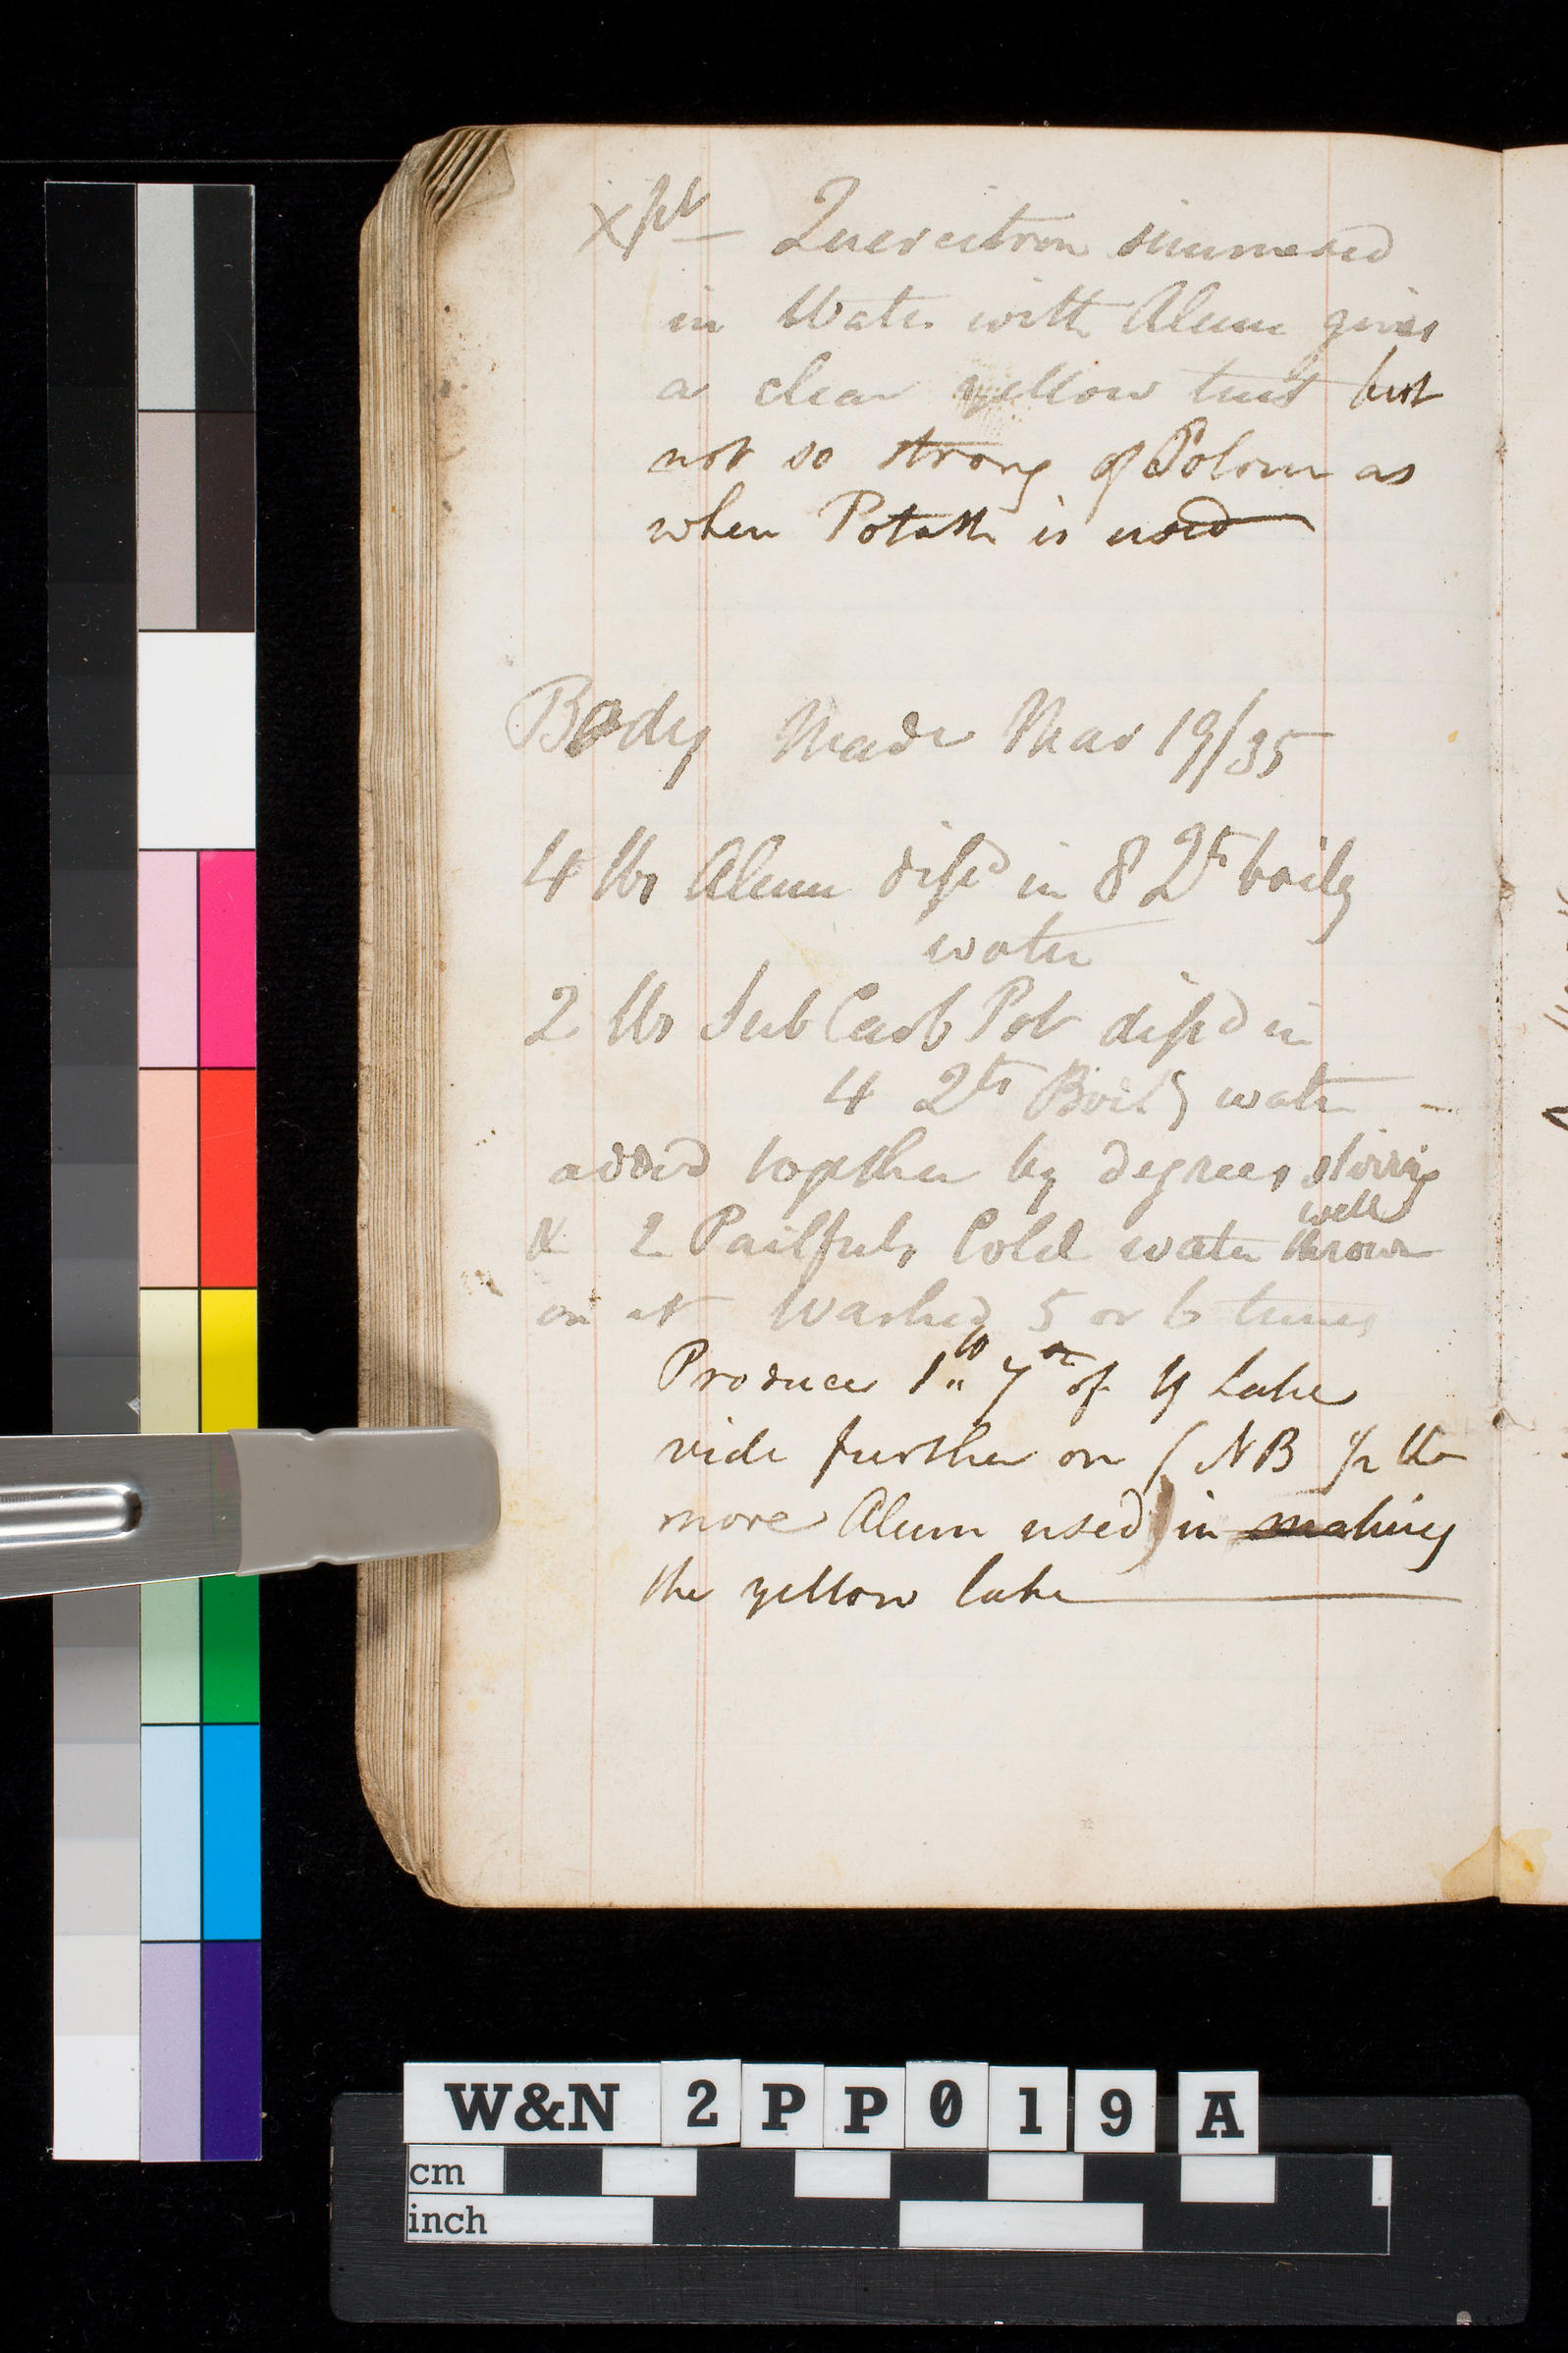 Xpt — Quercitron simmered
in Water with Alum gives
a clear yellow tint but
not so strong of Colour as
when Potash is used
Body Made Mar 19/35
4 lbs Alum dissd in 8 Qts boilg
water
2 lbs Sub Carb Pot dissd in
4 Qts Boilg water —
added together by degrees stirring
well
& 2 Pailfuls Cold water thrown
on it Washed 5 or 6 times
Produce 1 lb " 7 oz of Y Lake
vide further on (NB 1/2 lb
more Alum used) in making
the yellow lake
W&N 2PP019A
cm
inch